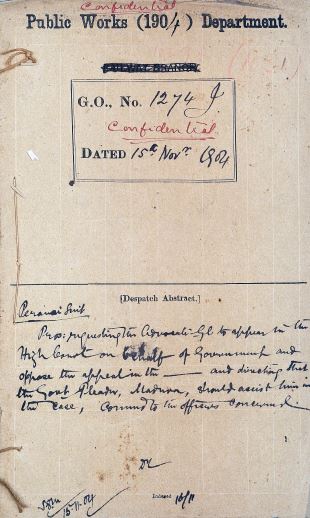 Confidential
Public Works (1904) Department.
G.O., No. 1274 I.
Confidential.
DATED 15th Novr. 1904
[Despatch Abstract.]
Suit
requesting the Advocate-Gl to appear in the
High Court on behalf of Government and
oppose the appeal in the — and directing that
the Govt Pleader, Madura, should assist him in
the case, Commd to the officers concerned.
15-11-04
Indexed 16/11